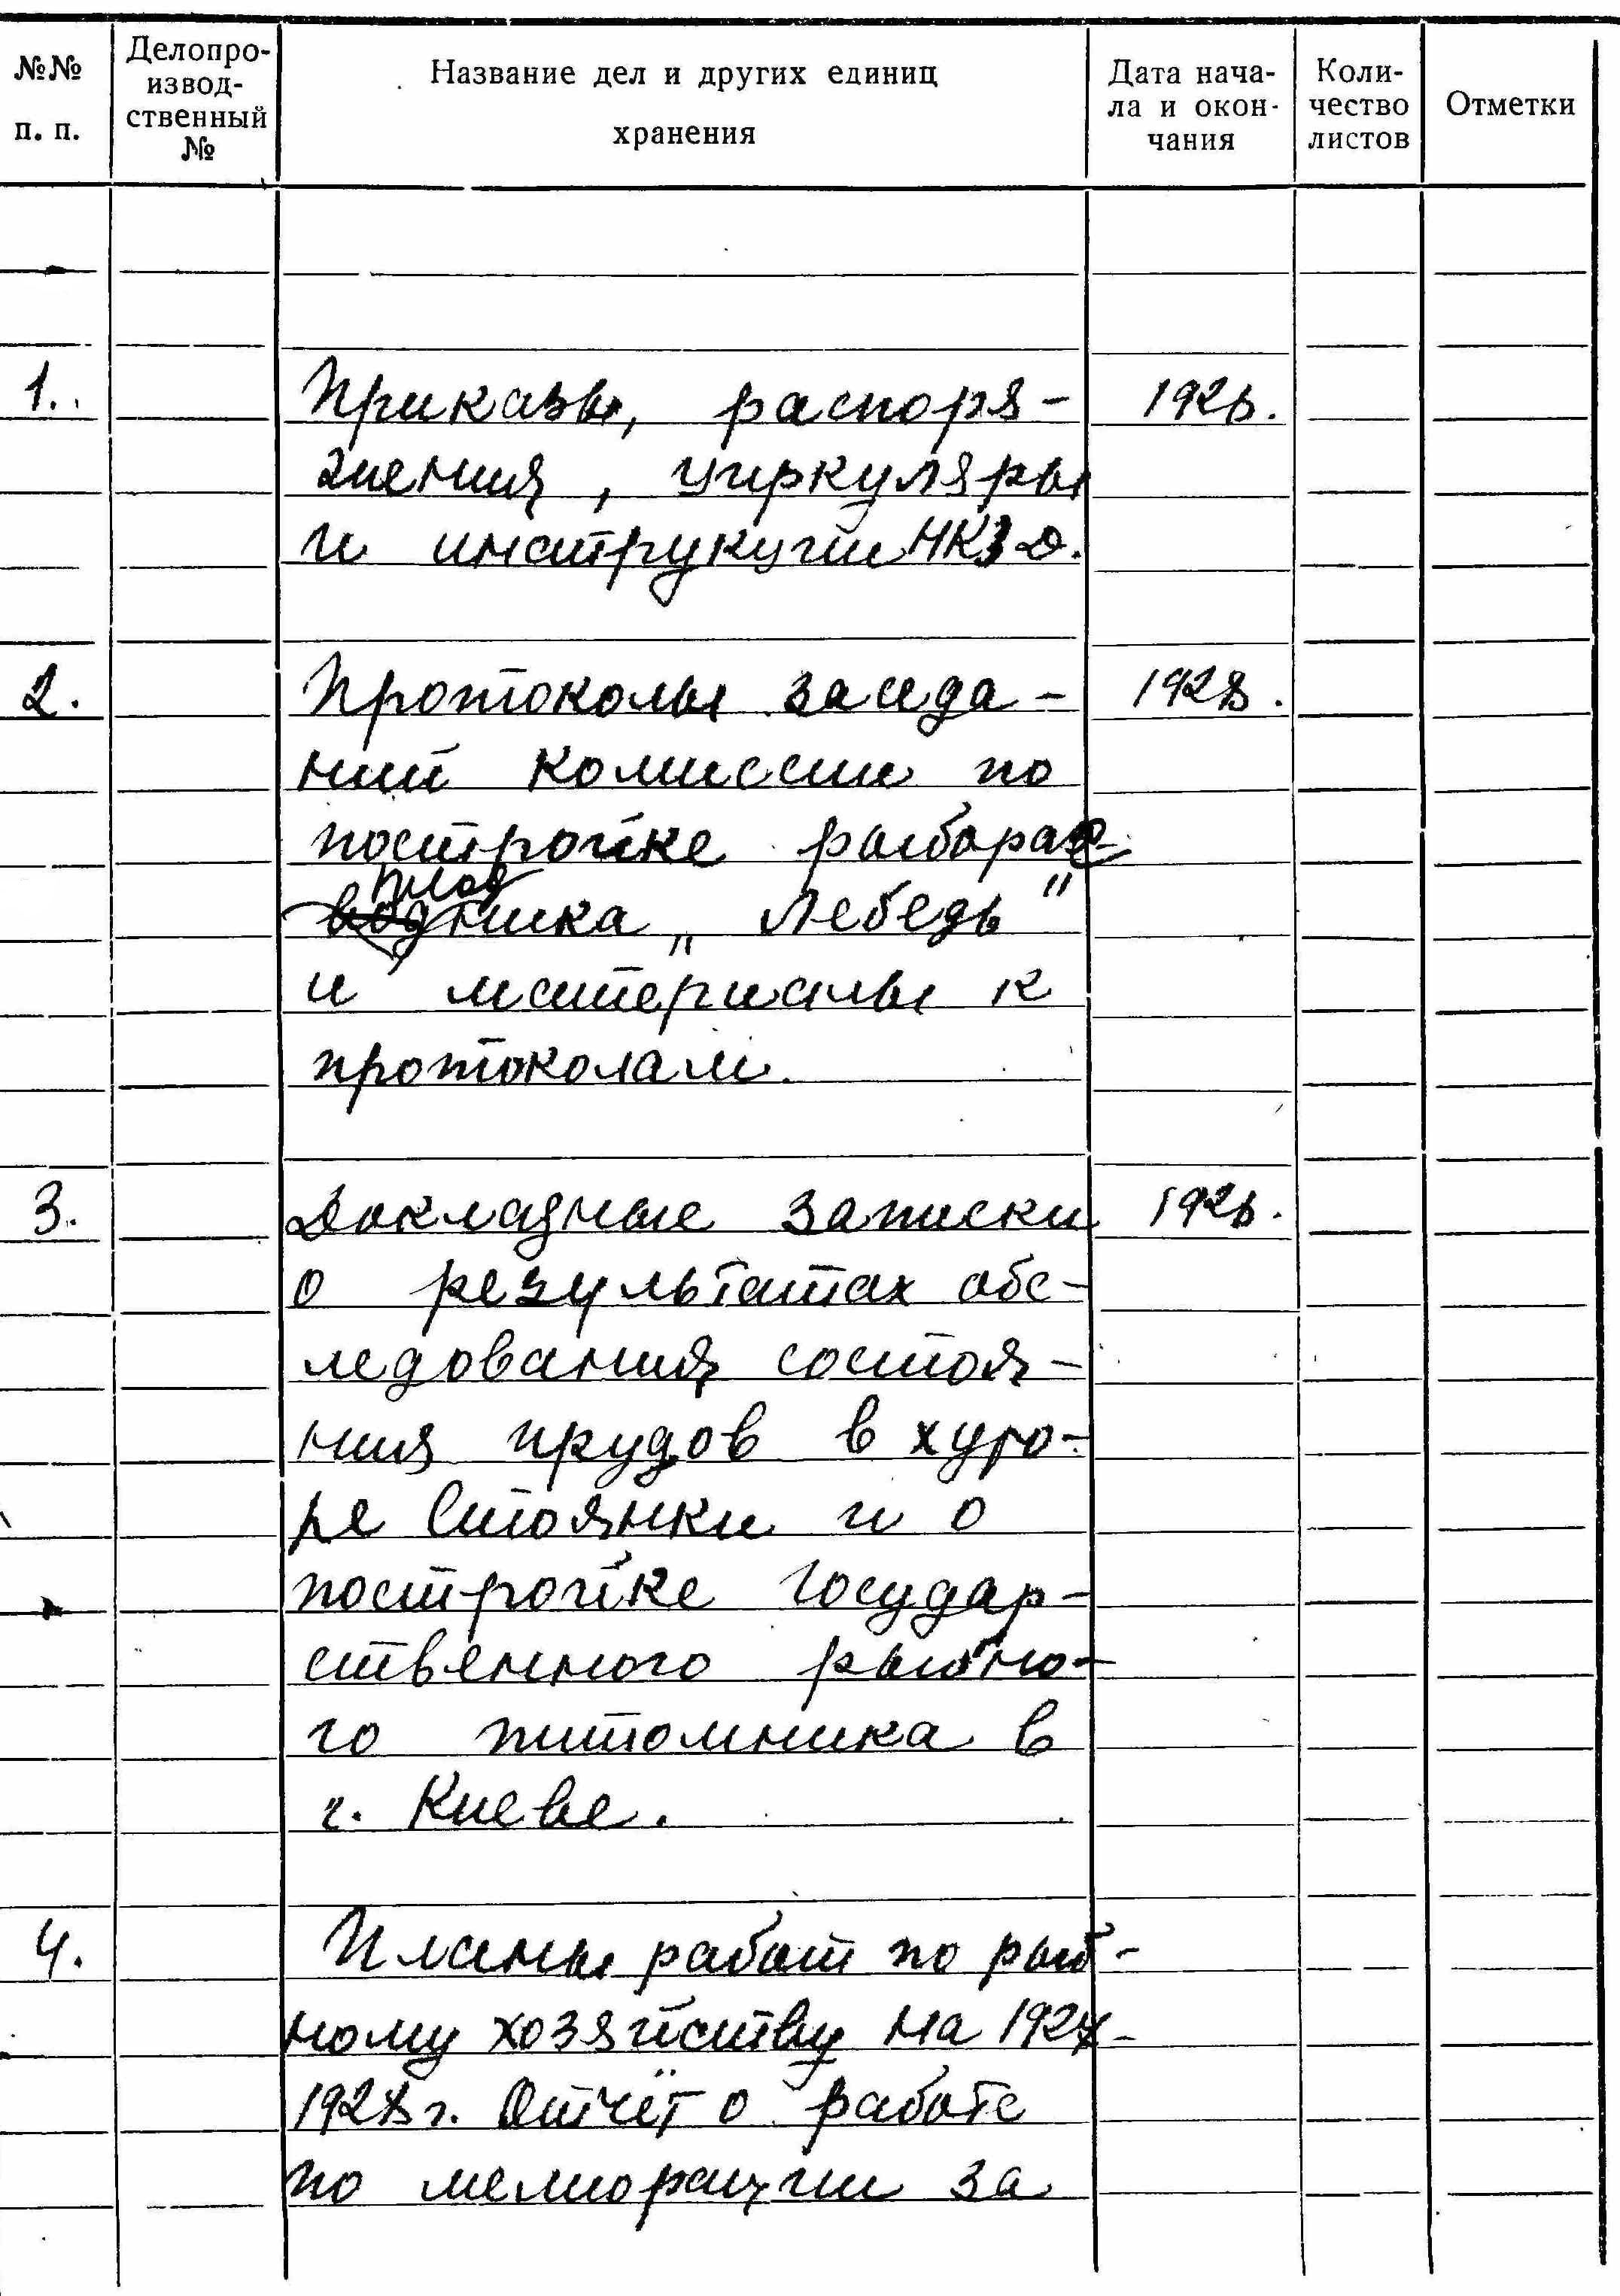 №№ п. п.
Делопро-
извод-
ственный
№
Название дел и других единиц
хранения
Дата нача-
ла и окон-
чания
Коли-
чество
листов
Отметки
1. Приказы, распоря-
жения, циркуляры
и инструкции НКЗД.
2. Протоколы заседа- 1928.
ний комиссии по
постройке рыбораз
плод
ника „Лебедь"
и материалы к
протоколам.
3. Докладные записки
о результатах обс-
ледования состоя-
ния прудов в хуто-
ре Стоянки и о
постройке Государ-
ственного рыбно-
го питомника в
г. Киеве.
4. Планы работ по рыб-
ному хозяйству на 1927-
1928 г. Отчёт о работе
по мелиорации за